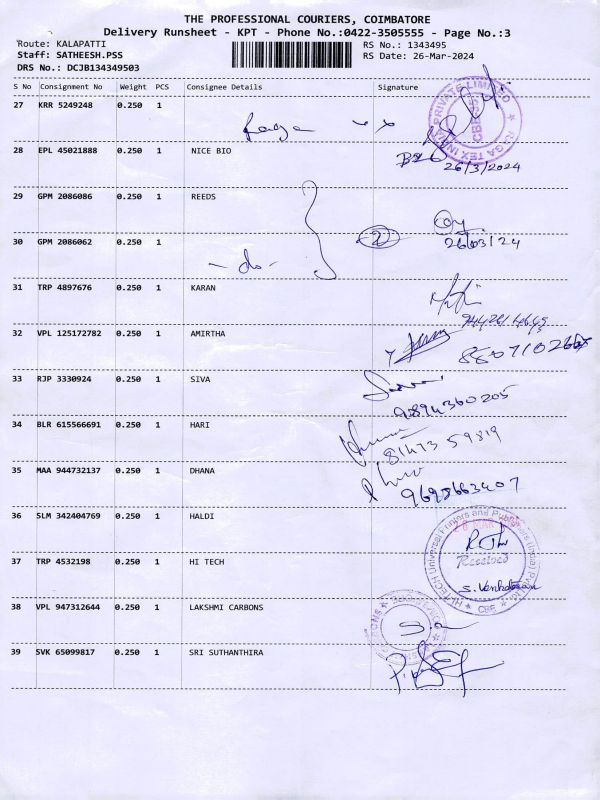 THE PROFESSIONAL COURIERS, COIMBATORE
Delivery Runsheet - KPT - Phone No.:0422-3505555 - Page No.:3
Route: KALAPATTI RS No.: 1343495
Staff: SATHEESH.PSS RS Date: 26-Mar-2024
DRS No.: DCJB134349503
S No Consignment No Weight PCS Consignee Details Signature
27 KRR 5249248 0.250 1
28 EPL 45021888 0.250 1 NICE BIO
26/3/2024
29 GPM 2086086 0.250 1 REEDS
30 GPM 2086062 0.250 1
26/03/24
- do - 2
31 TRP 4897676 0.250 1 KARAN
32 VPL 125172782 0.250 1 AMIRTHA
33 RJP 3330924 0.250 1 SIVA
9894360205
34 BLR 615566691 0.250 1 HARI
81473 59819
35 MAA 944732137 0.250 1 DHANA
9695663407
36 SLM 342404769 0.250 1 HALDI
37 TRP 4532198 0.250 1 HI TECH
Received
38 VPL 947312644 0.250 1 LAKSHMI CARBONS
39 SVK 65099817 0.250 1 SRI SUTHANTHIRA